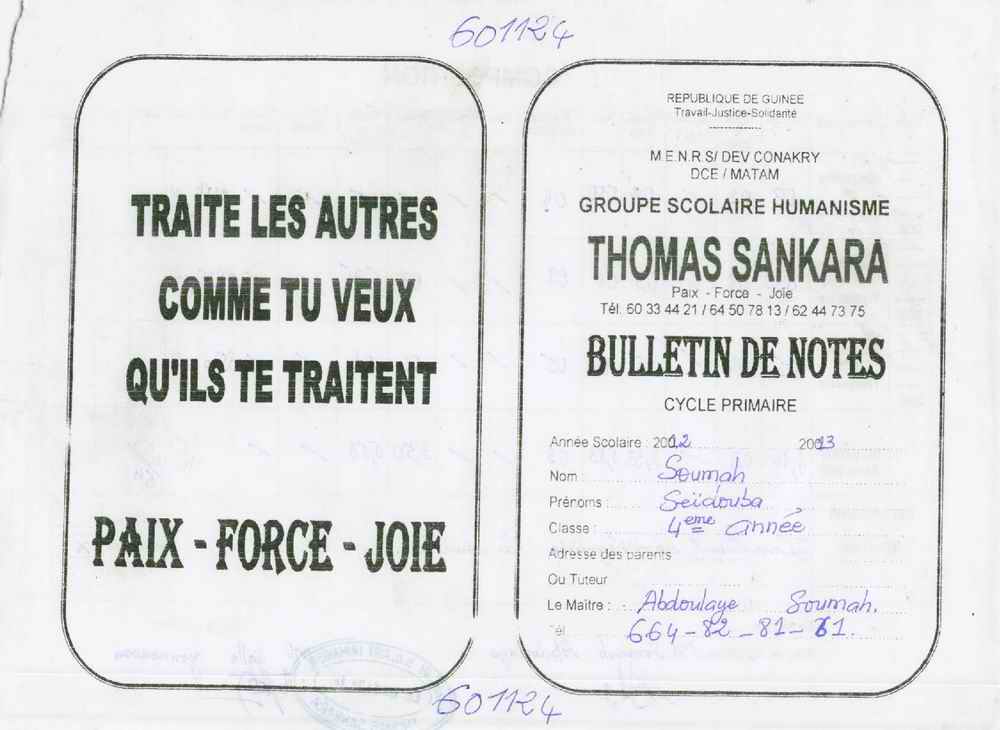 601124
TRAITE LES AUTRES
COMME TU VEUX
QU'ILS TE TRAITENT
PAIX - FORCE - JOIE
REPUBLIQUE DE GUINEE
Travail-Justice-Solidarité
M.E.N.R.S/ DEV CONAKRY
DCE / MATAM
GROUPE SCOLAIRE HUMANISME
THOMAS SANKARA
Paix - Force - Joie
Tél. 60 33 44 21 / 64 50 78 13 / 62 44 73 75
BULLETIN DE NOTES
CYCLE PRIMAIRE
Année Scolaire : 2012 2013
Nom : Soumah
Prénoms : Seïdouba
Classe : 4eme année
Adresse des parents
Ou Tuteur
Le Maître : Abdoulaye Soumah.
Tél. 664-82-81-61.
601124